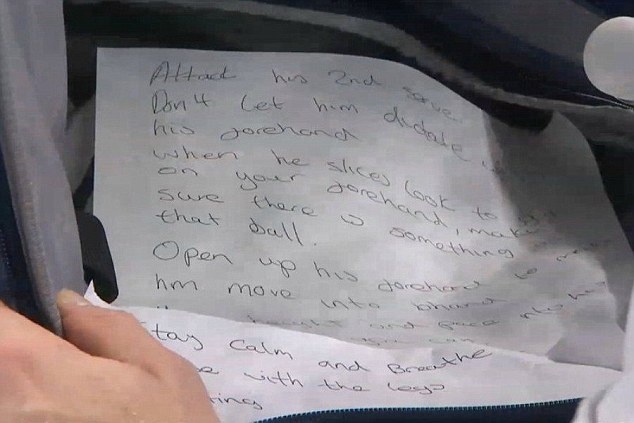 Attack his 2nd serve
Don't let him dictate
his forehand
When he slices look to
on your forehand, make
sure there is something
that ball.
Open up his forehand to
him move into bhand
and pace into his
Stay Calm and Breathe
with the legs